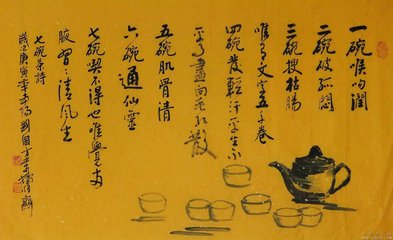 一碗喉吻潤
二碗破孤悶
三碗搜枯腸
唯有文字五千卷
四碗發輕汗平生不
平事盡向毛孔散
五碗肌骨清
六碗通仙靈
七碗喫不得也唯覺兩
腋習〻清風生
七碗茶詩
歲次庚寅年